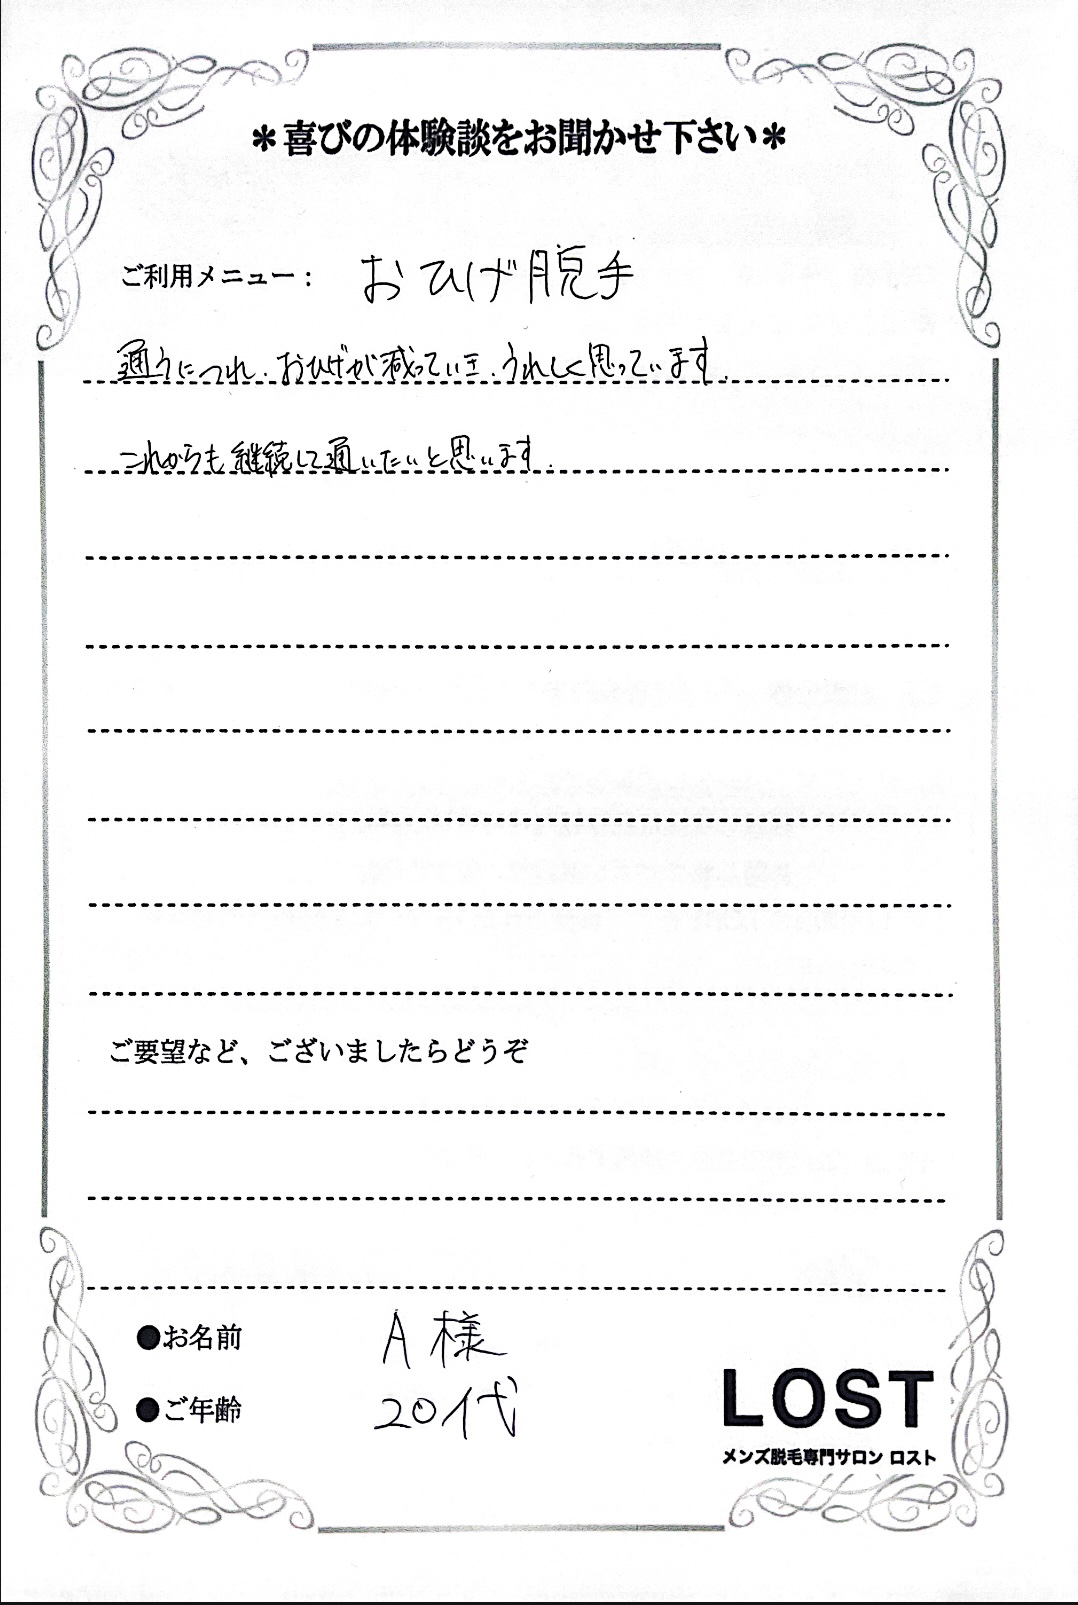 ＊喜びの体験談をお聞かせ下さい＊
ご利用メニュー： おひげ脱毛
通うにつれ、おひげが減っていき、うれしく思っています。
これからも継続して通いたいと思います。
ご要望など、ございましたらどうぞ
●お名前 A様
●ご年齢 20代
LOST
メンズ脱毛専門サロン ロスト